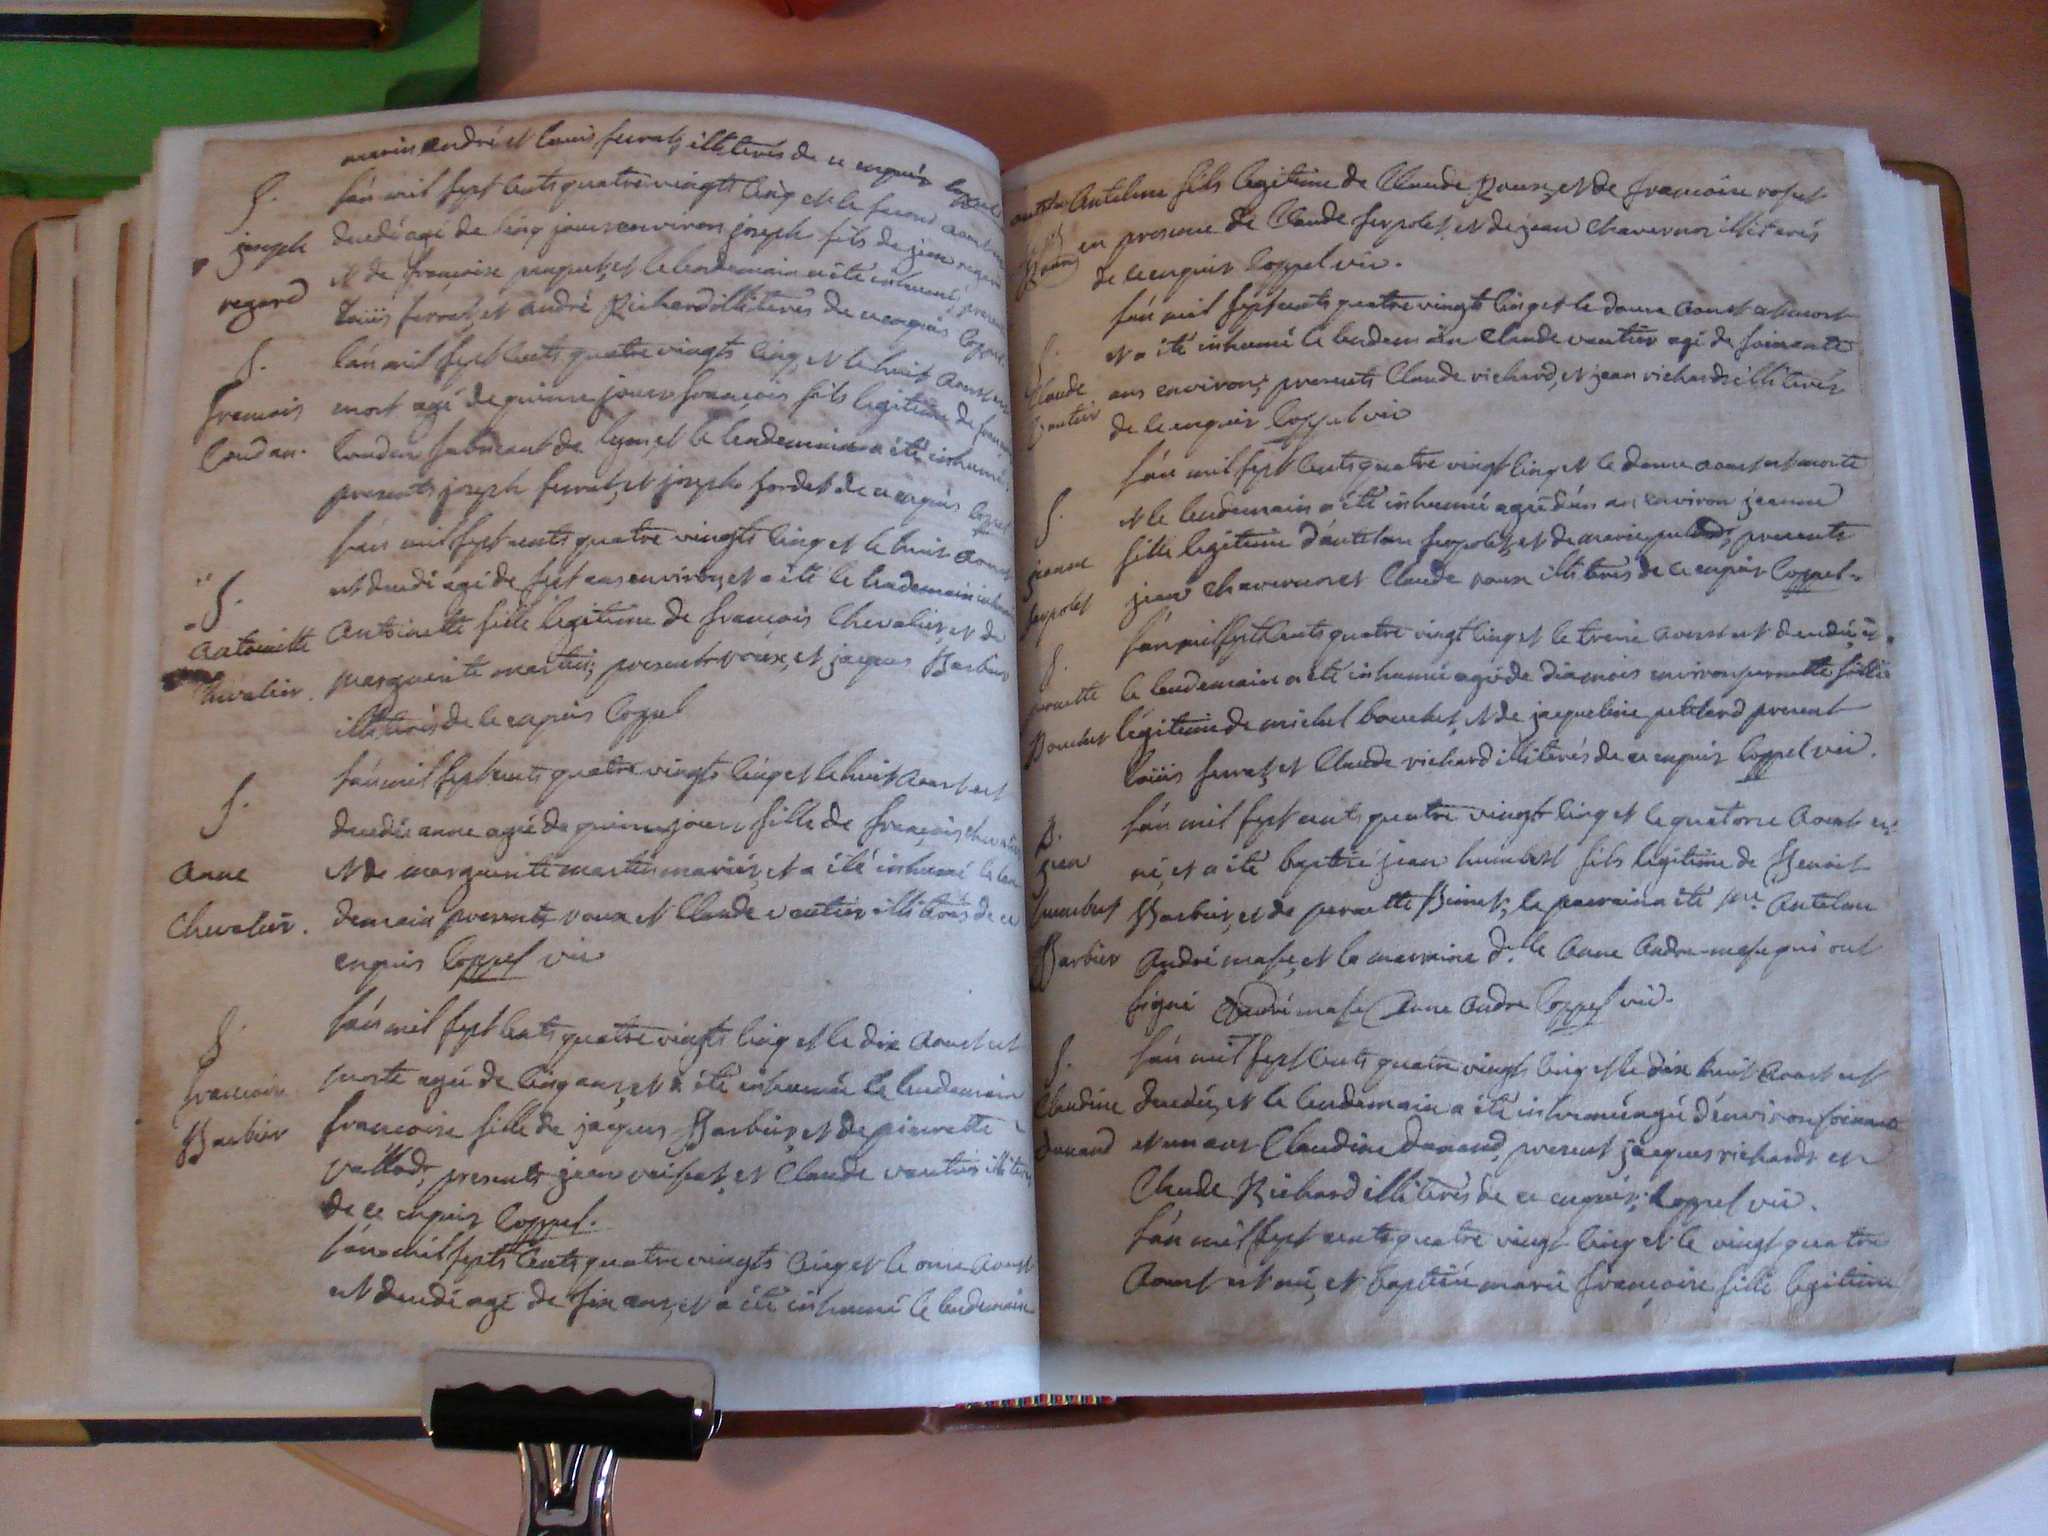 marin andré et louis ferrat, illiterés de ce enquis Coppel
S.
joseph
regard
l'an mil sept cents quatre vingts cinq et le second aoust est
decedé agé de cinq jours environ joseph fils de jean regard
et de françoise et le lendemain a été inhumé, presents
louis ferrat, et andré Richard illiterés de ce enquis Coppel
S.
francois
Coudan.
l'an mil sept cents quatre vingts cinq, et le huit aoust est
mort agé de quinze jours françois fils legitime de françois
Coudan fabricant de lyon, et le lendemain a été inhumé,
presents joseph ferrat, et joseph fordet de ce enquis Coppel
S.
Antoinette
Chevalier.
l'an mil sept cents quatre vingts cinq et le huit aoust
est decedé agé de sept ans environ, et a été le lendemain inhumé
Antoinette fille legitime de françois Chevalier, et de
marguerite martin; presents roux, et jacques Barbier
illiterés de ce enquis Coppel
S.
Anne
Chevalier.
l'an mil sept cents quatre vingts cinq et le huit aoust est
decedée anne agée de quinze jours fille de françois chevalier
et de marguerite martin mariés, et a été inhumé le len
demain presents roux et Claude vautier illiterés de ce
enquis Coppel vic
S.
francoise
Barbier
l'an mil sept cents quatre vingts cinq et le dix aoust est
morte agée de cinq ans, et a été inhumée le lendemain
francoise fille de jacques Barbier, et de pierrette
vallod, presents jean et Claude vautier illiterés
de ce enquis Coppel.
l'an mil septs cents quatre vingts cinq et le onze aoust
est decedé agé de six ans, et a été inhumé le lendemain
Antelme fils legitime de Claude Roux, et de francoise roset
en presence de Claude serpolet, et de jean Chavernoz illiterés
de ce enquis Coppel vic.
S.
Claude
Vautier
l'an mil sept cents quatre vingts cinq et le douze aoust est mort
et a été inhumé le lendemain Claude vautier agé de soixante
ans environ; presents Claude richard, et jean richard illiterés
de ce enquis Coppel vic
S.
jeanne
serpolet
l'an mil sept cents quatre vingt cinq et le douze aoust est morte
et le lendemain a été inhumé agée d'un an environ jeanne
fille legitime d'antelme serpolet, et de marie presents
jean chavernoz et Claude roux illiterés de ce enquis Coppel
S.
pernette
Bouchet
l'an mil sept cents quatre vingt cinq et le treize aoust est decedée, et
le lendemain a été inhumé agée de dix mois environ pernette fille
légitime de michel bouchet, et de jacqueline petelard present
louis ferrat, et Claude richard illiterés de ce enquis Coppel vic.
B.
jean
humbert
Barbier
l'an mil sept cents quatre vingts cinq et le quatorze aoust est
né, et a été baptisé jean humbert fils legitime de Benoit
Barbier, et de pernette Binet, le parrain a été sr. Antelme
André mase, et la marraine d.lle Anne Andre mase qui ont
signé André mase Anne andre Coppel vic.
S.
Claudine
Dunand
l'an mil sept cents quatre vingts cinq et le dix huit aoust est
decedée, et le lendemain a été inhumé agé d'environ soixante
et un ans Claudine Dunand, present jacques richard et
Claude Richard illiterés de ce enquis; Coppel vic.
l'an mil sept cents quatre vingt cinq et le vingt quatre
Aoust est né, et baptisée marie françoise fille legitime